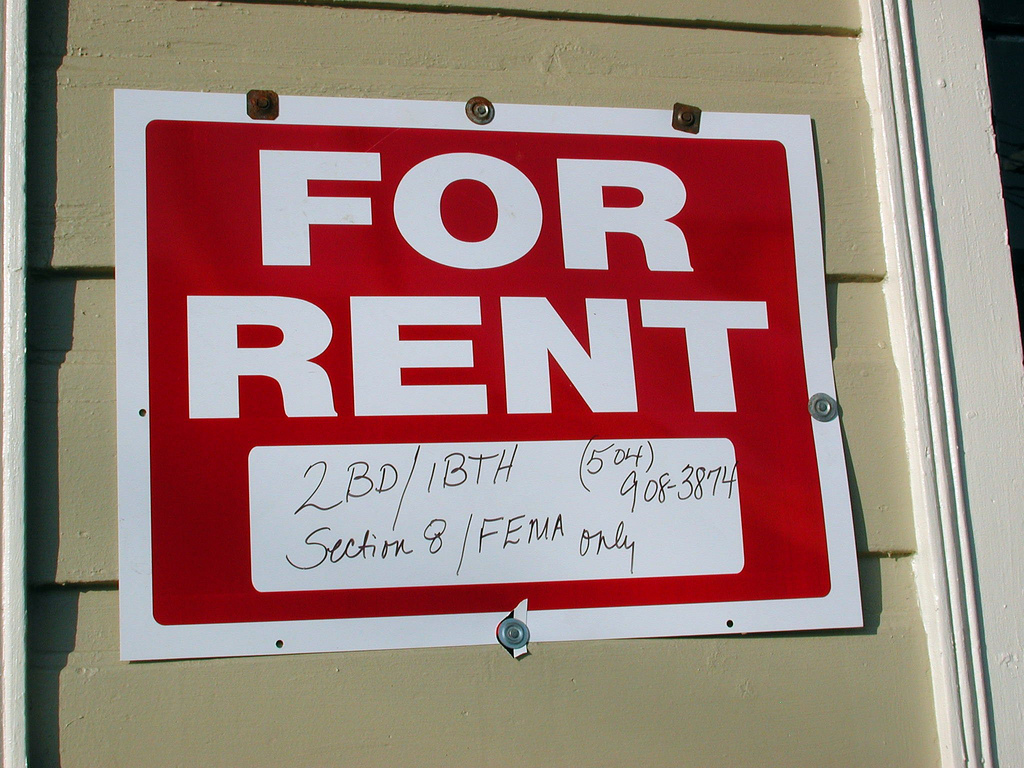 FOR
RENT
2BD/1BTH (504)
908-3874
Section 8/FEMA only